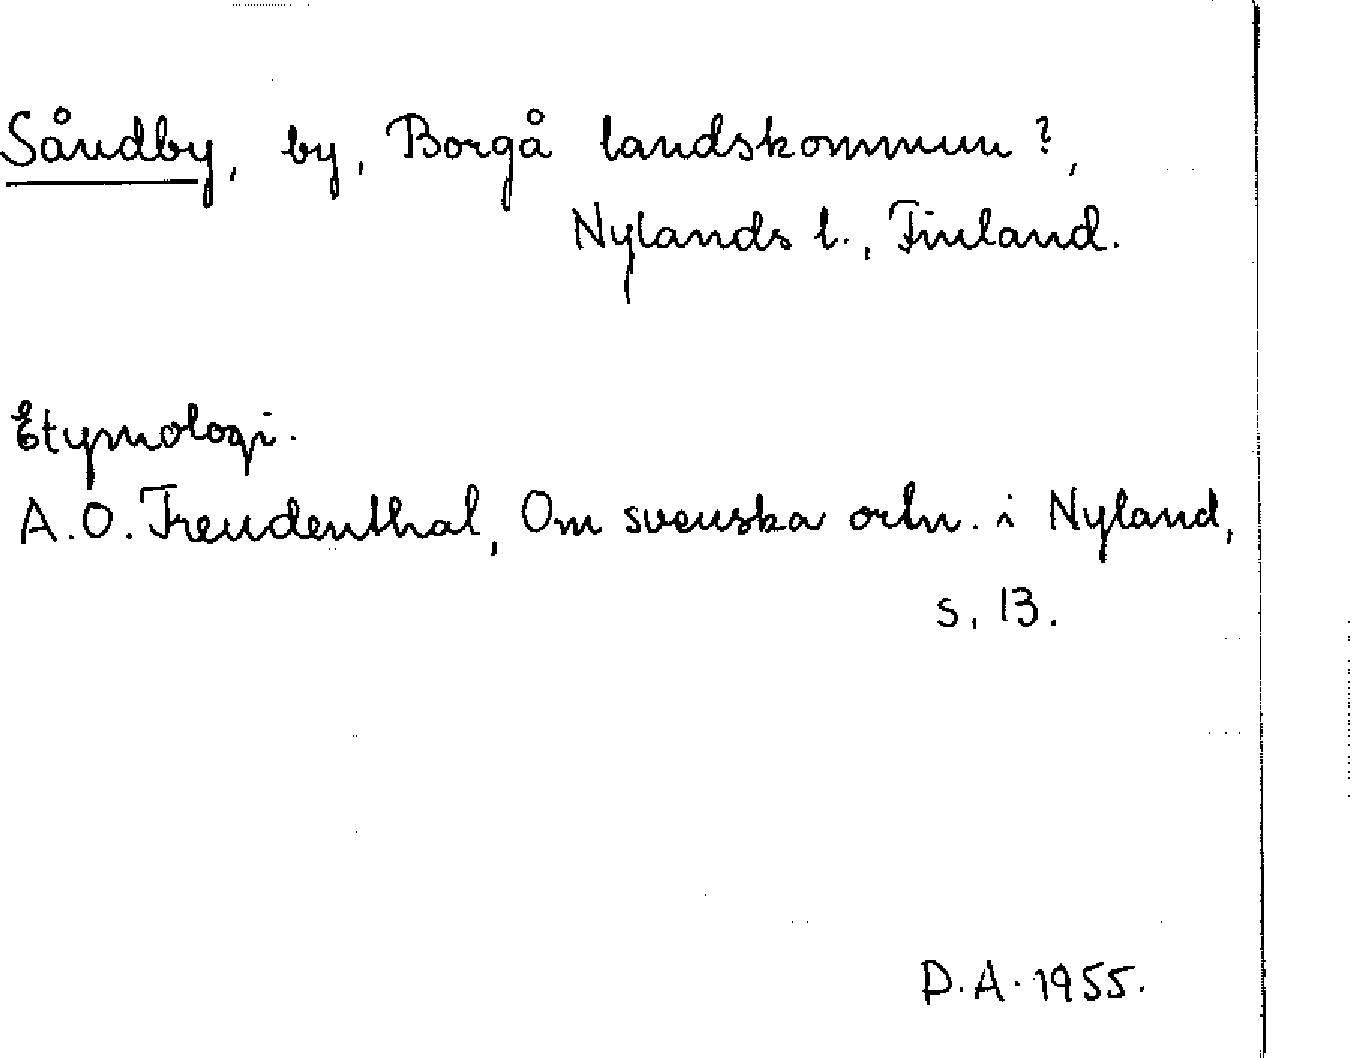 Såndby, by, Borgå landskommun?,
Nylands l., Finland.
Etymologi.
A.O. Freudenthal, Om svenska ortn. i Nyland,
s. 13.
D.A. 1955.